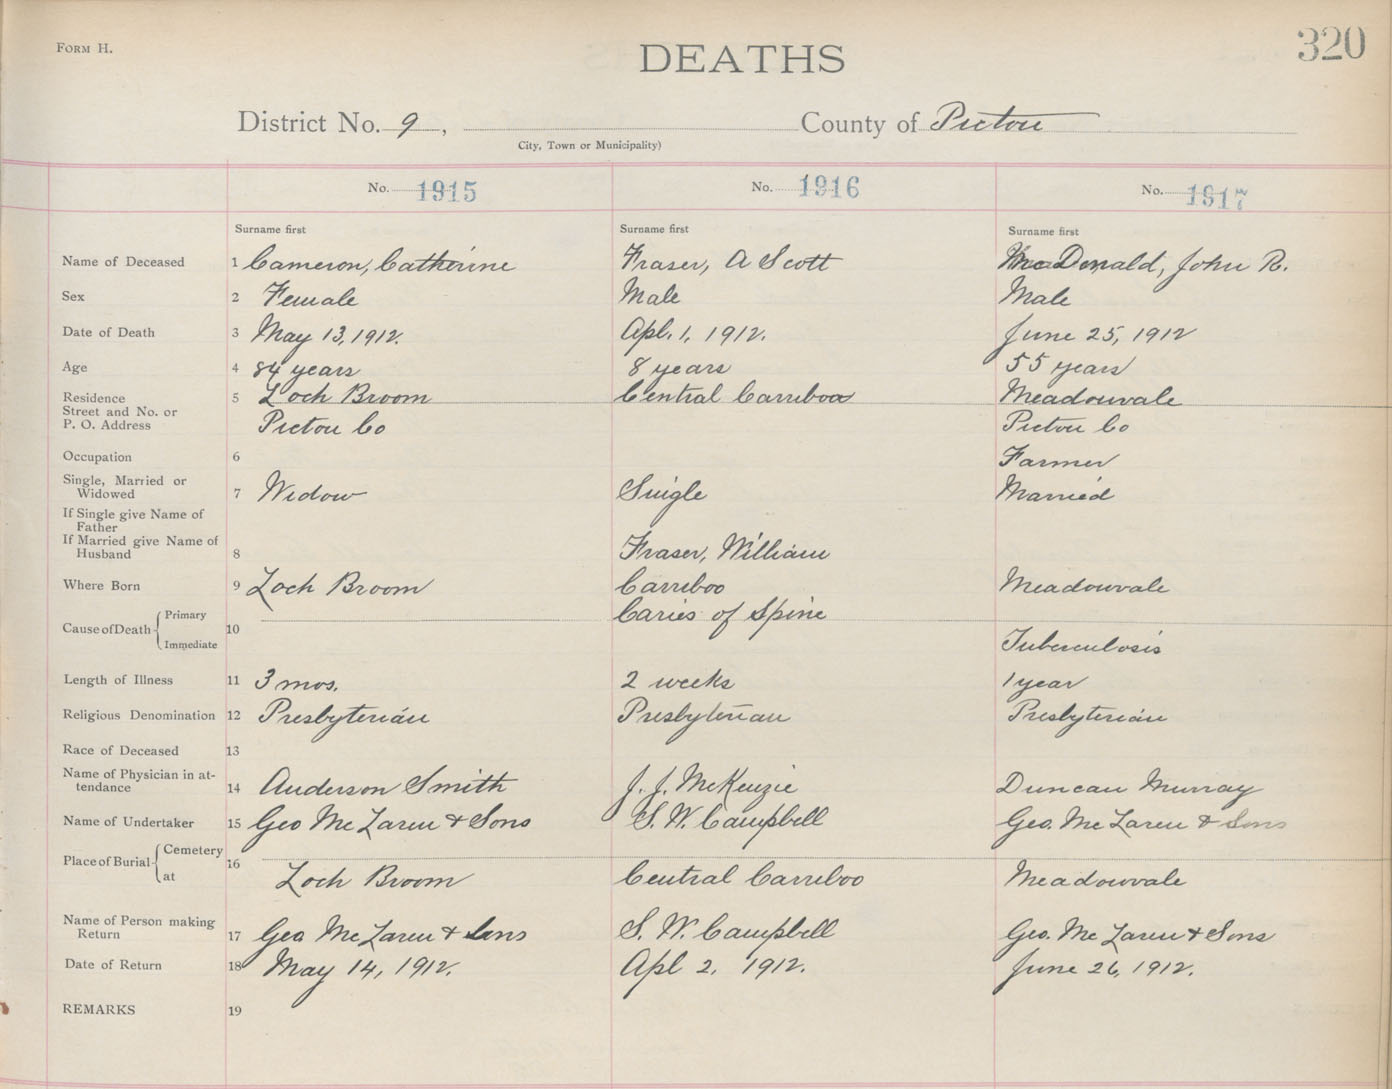 FORM H.
DEATHS
320
District No. 9, County of Pictou
City, Town or Municipality)
No. 1915 No. 1916 No. 1917
Surname first Surname first Surname first
Name of Deceased 1 Cameron, Catherine Fraser, A Scott MacDonald, John R.
Sex 2 Female Male Male
Date of Death 3 May 13, 1912. Apl. 1, 1912. June 25, 1912
Age 4 84 years 8 years 55 years
Residence 5 Loch Broom Central Carriboo Meadowvale
Street and No. or
P. O. Address Pictou Co Pictou Co
Occupation 6 Farmer
Single, Married or
Widowed 7 Widow Single Married
If Single give Name of
Father
If Married give Name of
Husband 8 Fraser, William
Where Born 9 Loch Broom Carriboo Meadowvale
Cause of Death Primary 10 Caries of Spine
Immediate Tuberculosis
Length of Illness 11 3 mos. 2 weeks 1 year
Religious Denomination 12 Presbyterian Presbyterian Presbyterian
Race of Deceased 13
Name of Physician in at-
tendance 14 Anderson Smith J. J. McKenzie Duncan Murray
Name of Undertaker 15 Geo McLaren & Sons S. W. Campbell Geo. McLaren & Sons
Place of Burial Cemetery 16
at Loch Broom Central Carriboo Meadowvale
Name of Person making
Return 17 Geo McLaren & Sons S. W. Campbell Geo. McLaren & Sons
Date of Return 18 May 14, 1912. Apl 2, 1912. June 26, 1912.
REMARKS 19